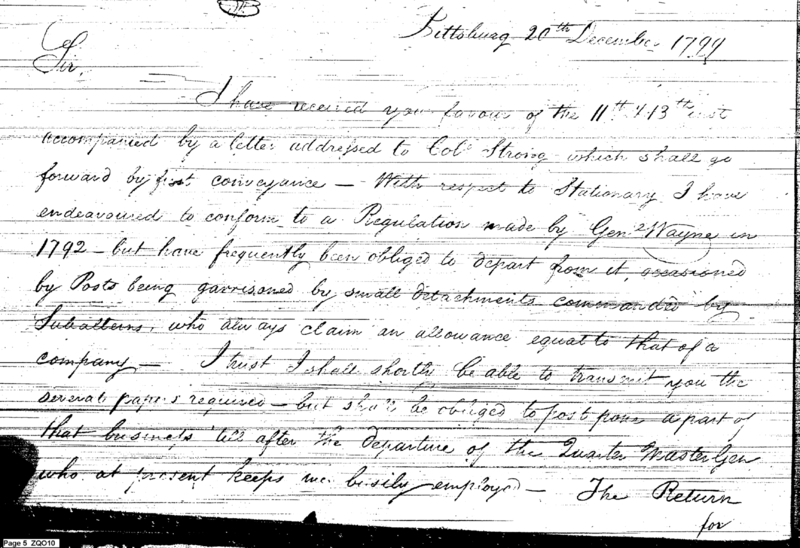 Pittsburg 20th December 1799
Sir.
I have received your favours of the 11th & 13th inst
accompanied by a letter addressed to Colo Strong which shall go
forward by first conveyance — With respect to Stationary I have
endeavoured to conform to a Regulation made by Genl Wayne in
1792 – but have frequently been obliged to depart from it, occasioned
by Posts being garrisoned by small detachments commanded by
Subalterns, who always claim an allowance equal to that of a
company — I trust I shall shortly be able to transmit you the
several papers required – but shall be obliged to postpone a part of
that business 'till after the departure of the Quarter Master Gen
who at present keeps me busily employed — The Return
for
Page 5 ZQO10